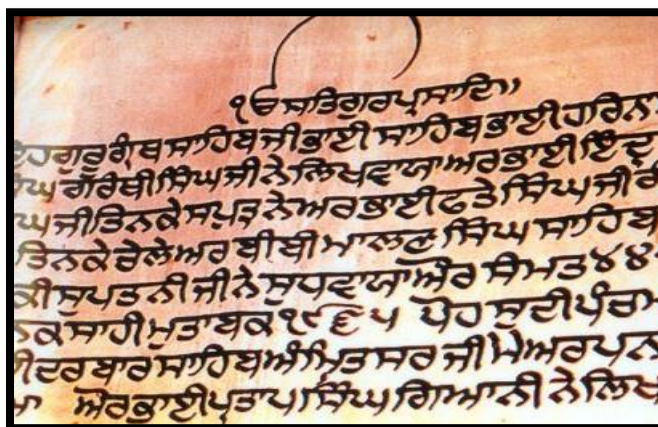 ੴ ਸਤਿਗੁਰ ਪ੍ਰਸਾਦਿ॥
ਇਹ ਗੁਰੂ ਗ੍ਰੰਥ ਸਾਹਿਬ ਜੀ ਭਾਈ ਸਾਹਿਬ ਭਾਈ ਹਰਿਨਾ
ਸਿੰਘ ਗ੍ਰੰਥੀ ਸਿੰਘ ਜੀ ਨੇ ਲਿਖਵਾਯਾ ਅਰ ਭਾਈ ਇੰਦ੍ਰ
ਘ ਜੀ ਤਿਨਕੇ ਸਪੁਤ੍ਰ ਨੇ ਅਰ ਭਾਈ ਫਤੇ ਸਿੰਘ ਜੀ
ਤਿਨਕੇ ਚੇਲੇ ਅਰ ਬੀਬੀ ਮਾਲਣ ਸਿੰਘ ਸਾਹਿਬ
ਕੀ ਸੁਪਤਨੀ ਜੀ ਨੇ ਸੁਧਵਾਯਾ ਔਰ ਸੰਮਤ ੪੪
ਨਕ ਸਾਹੀ ਮੁਤਾਬਕ ੧੯੬੫ ਪੋਹ ਸੁਦੀ ਪੰਚਮ
ੀ ਦਰਬਾਰ ਸਾਹਿਬ ਅੰਮ੍ਰਿਤਸਰ ਜੀ ਮੇ ਅਰਪਨ
ਆ ਔਰ ਭਾਈ ਪ੍ਰਤਾਪ ਸਿੰਘ ਗਿਆਨੀ ਨੇ ਲਿਖ